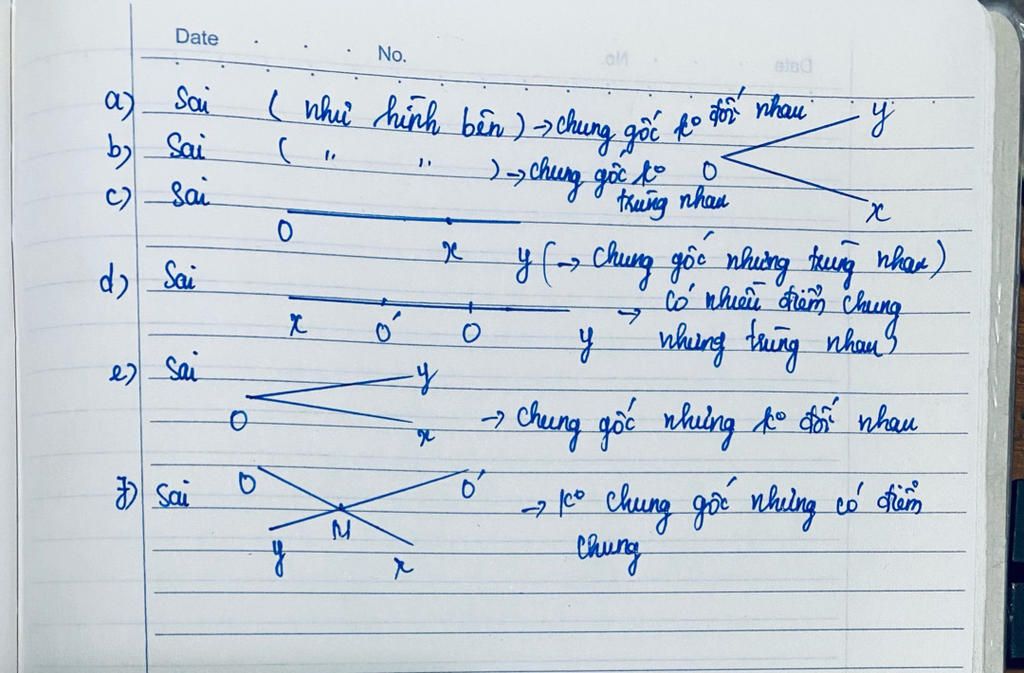 Date . . . No.
a) Sai ( như hình bên ) → chung gốc k° đối nhau y
b) Sai ( " " ) → chung gốc k° trùng nhau O x
c) Sai
O x y ( → chung gốc nhưng trùng nhau )
d) Sai
x O' O y → có nhiều điểm chung
nhưng trùng nhau
e) Sai y
O x → chung gốc nhưng k° đối nhau
f) Sai O O' → k° chung gốc nhưng có điểm
y M x chung